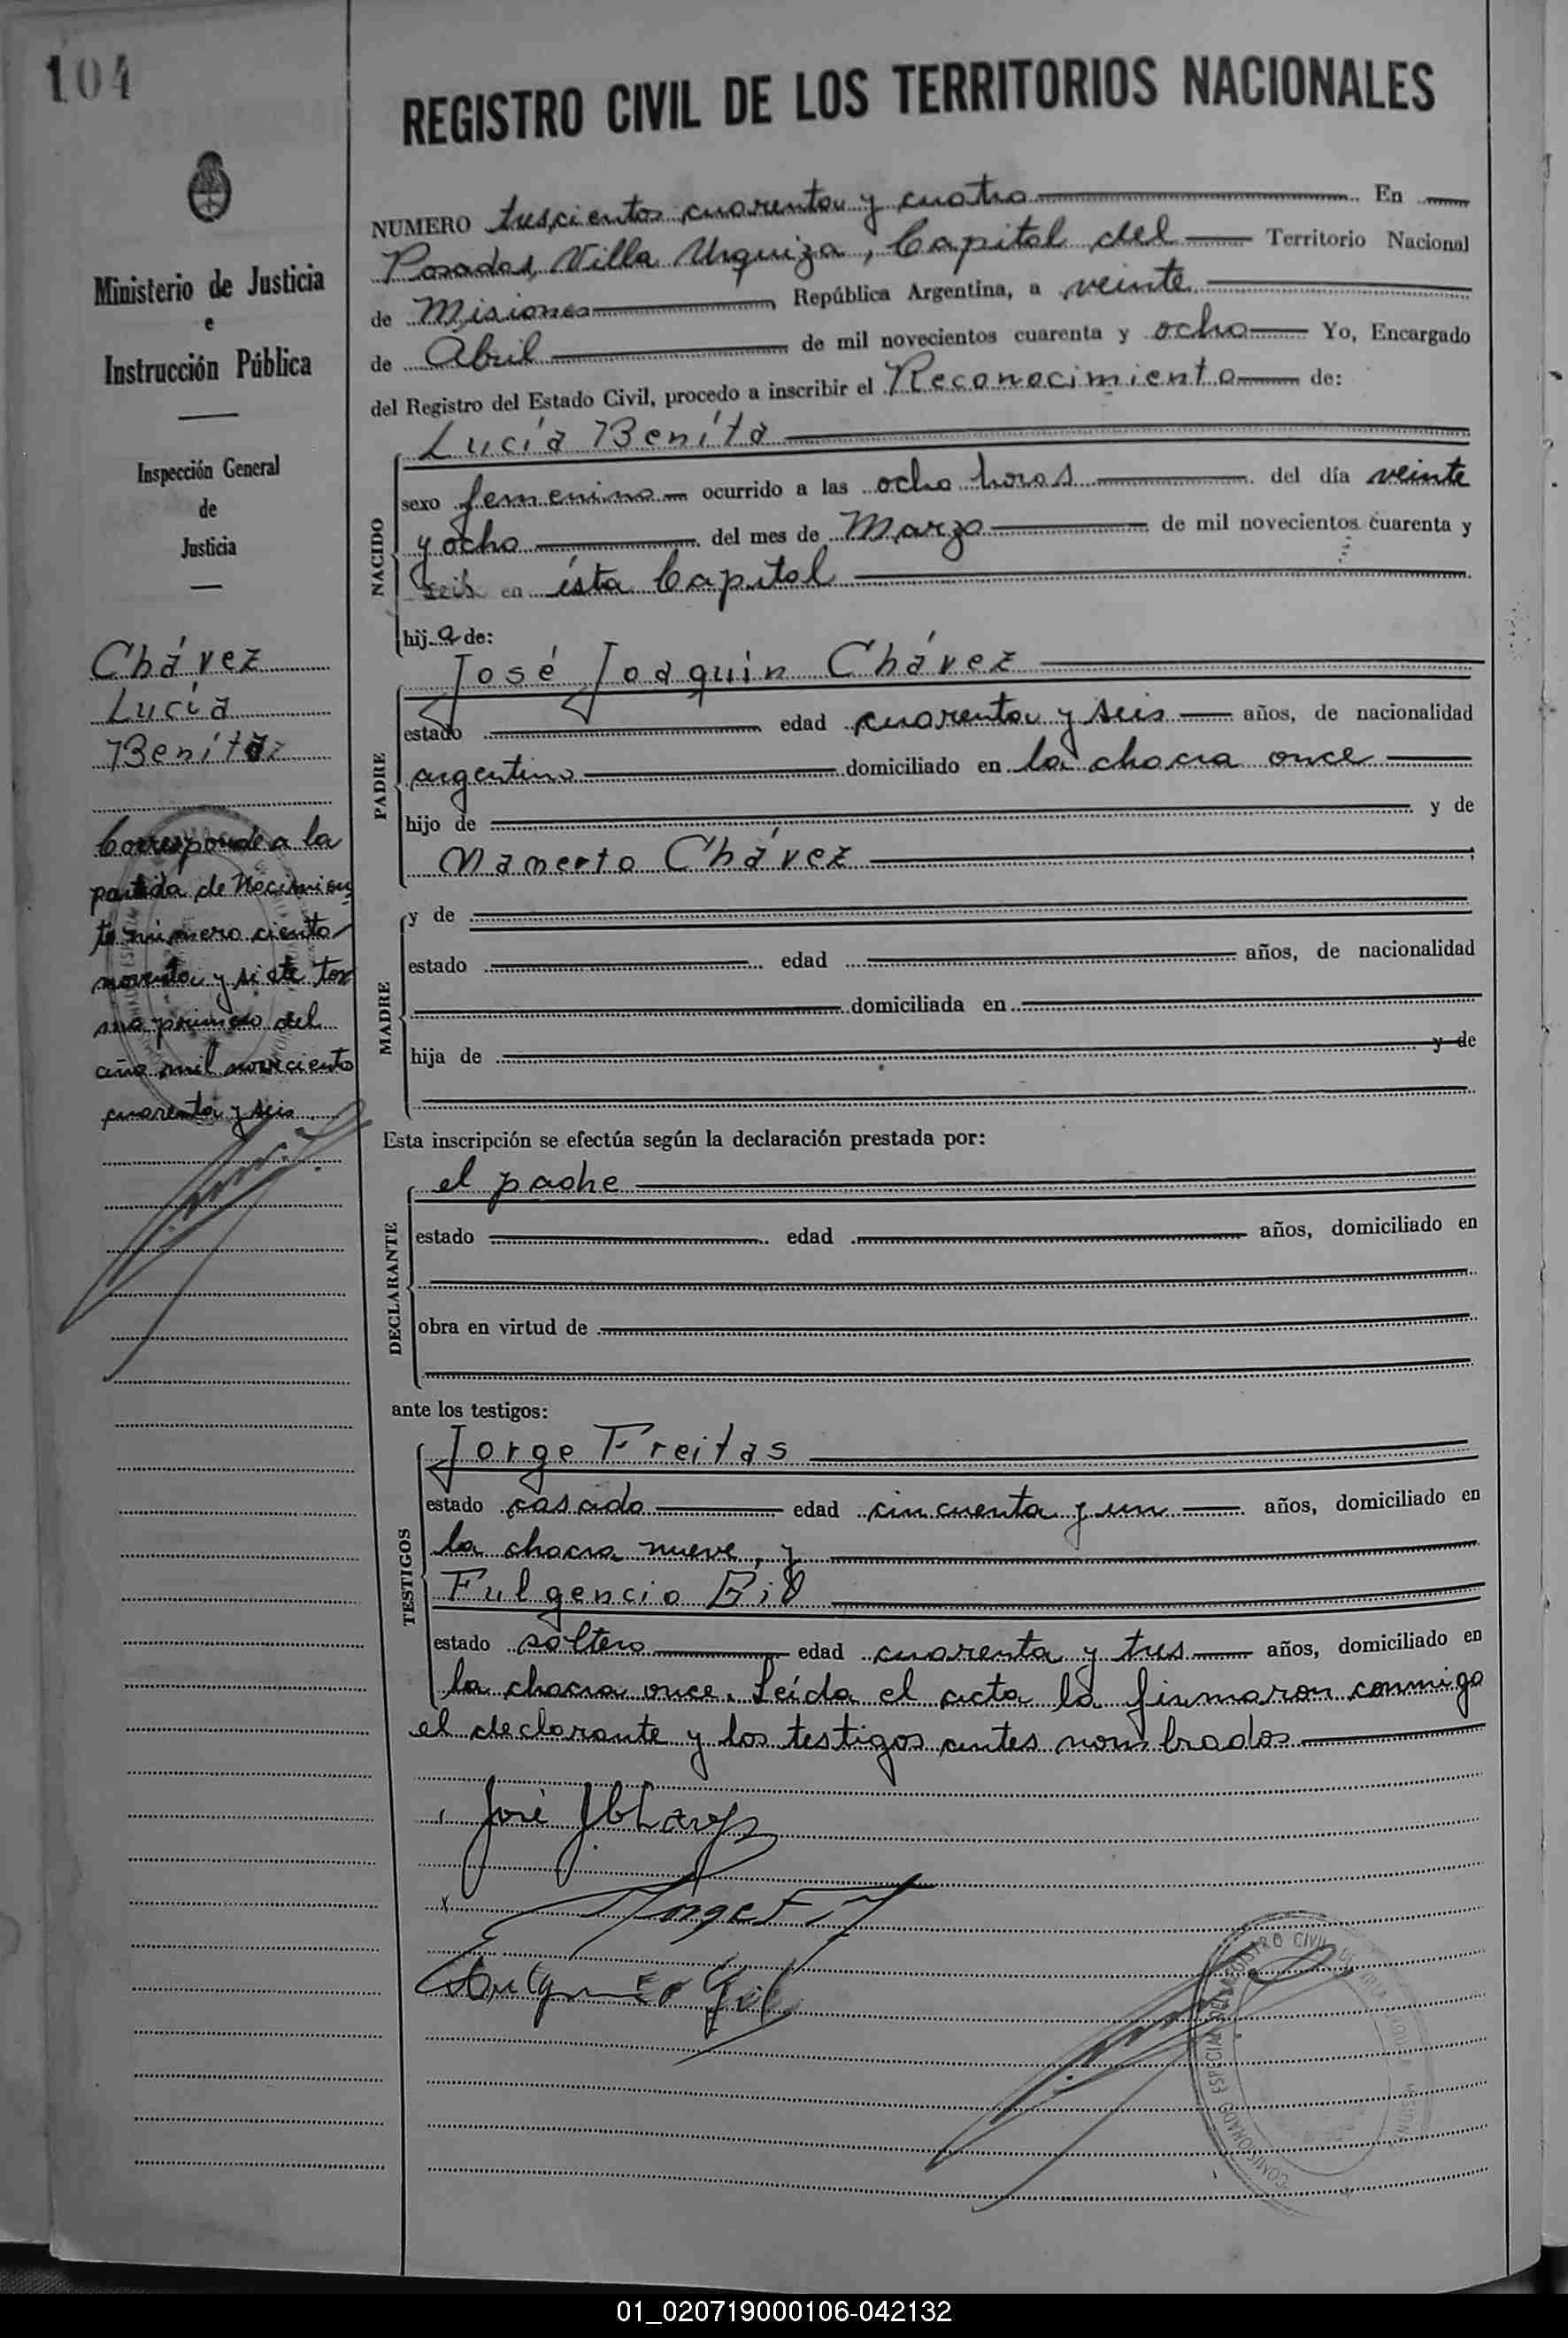 104
REGISTRO CIVIL DE LOS TERRITORIOS NACIONALES
Ministerio de Justicia
e
Instrucción Pública
Inspección General
de
Justicia
Chávez
Lucía
Benita
Corresponde a la
partida de Nacimien
to número ciento
noventa y siete to
mo primero del
año mil noveciento
cuarenta y seis
NUMERO trescientos cuarenta y cuatro En
Posadas, Villa Urquiza, Capital del Territorio Nacional
de Misiones, República Argentina, a veinte
de Abril de mil novecientos cuarenta y ocho Yo, Encargado
del Registro del Estado Civil, procedo a inscribir el Reconocimiento de:
Lucía Benita
NACIDO
sexo femenino ocurrido a las ocho horas del día veinte
y ocho del mes de Marzo de mil novecientos cuarenta y
seis en ésta Capital
hija de:
José Joaquin Chávez
PADRE
estado edad cuarenta y seis años, de nacionalidad
argentino domiciliado en la chacra once
hijo de y de
Mamerto Chávez ;
MADRE
y de
estado edad años, de nacionalidad
domiciliada en
hija de y de
Esta inscripción se efectúa según la declaración prestada por:
el padre
DECLARANTE
estado edad años, domiciliado en
obra en virtud de
ante los testigos:
Jorge Freitas
TESTIGOS
estado casado edad cincuenta y un años, domiciliado en
la chacra nueve, y
Fulgencio Gil
estado soltero edad cuarenta y tres años, domiciliado en
la chacra once. Leída el acta la firmaron conmigo
el declarante y los testigos antes nombrados
José J Chavez
Jorge F
Fulgencio Gil
COMISIONADO ESPECIAL DEL REGISTRO CIVIL DE VILLA URQUIZA MISIONES
01_020719000106-042132